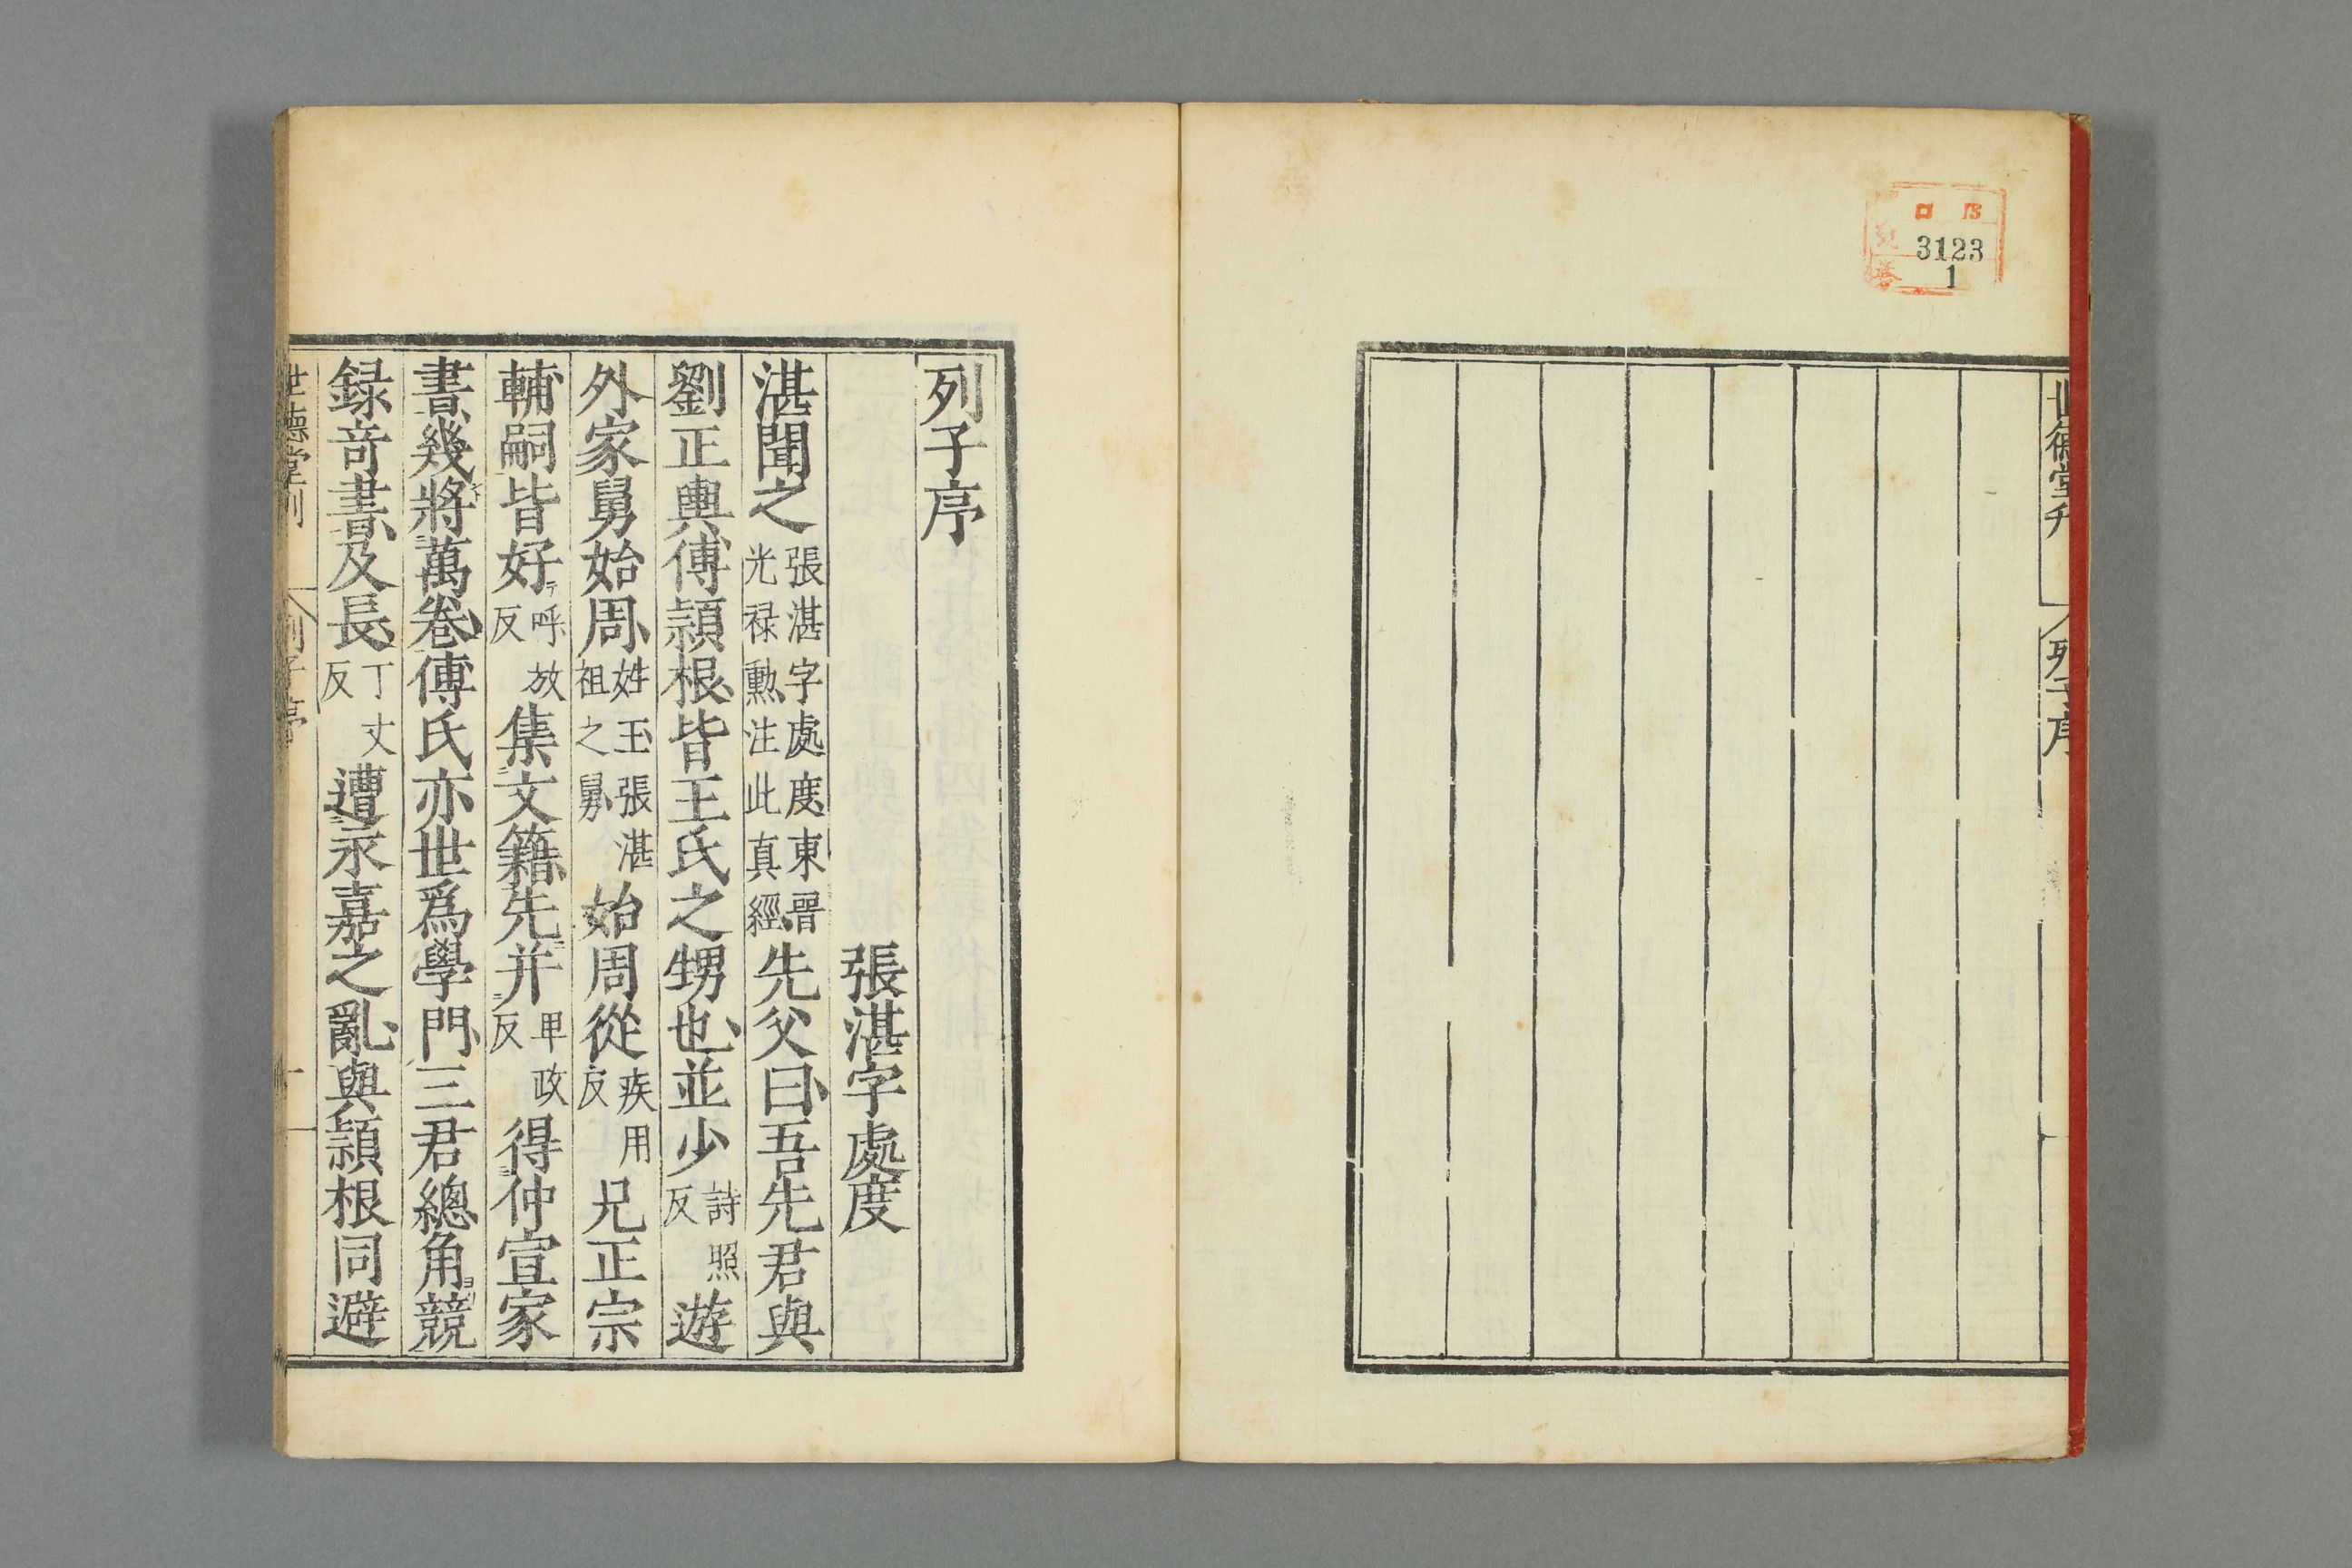 3123
1
世德堂刊
列子序
列子序
張湛字處度
湛聞之張湛字處度東晉光祿勲注此真經先父曰吾先君與
劉正輿傅頴根皆王氏之甥也並少詩照反遊
外家舅始周姓王張湛祖之舅始周從疾用反兄正宗
輔嗣皆好呼放反集文籍先并卑政反得仲宣家
書幾將萬卷傅氏亦世爲學門三君總角競
録竒書及長丁丈反遭永嘉之亂與頴根同避
世德堂刊
列子序
一